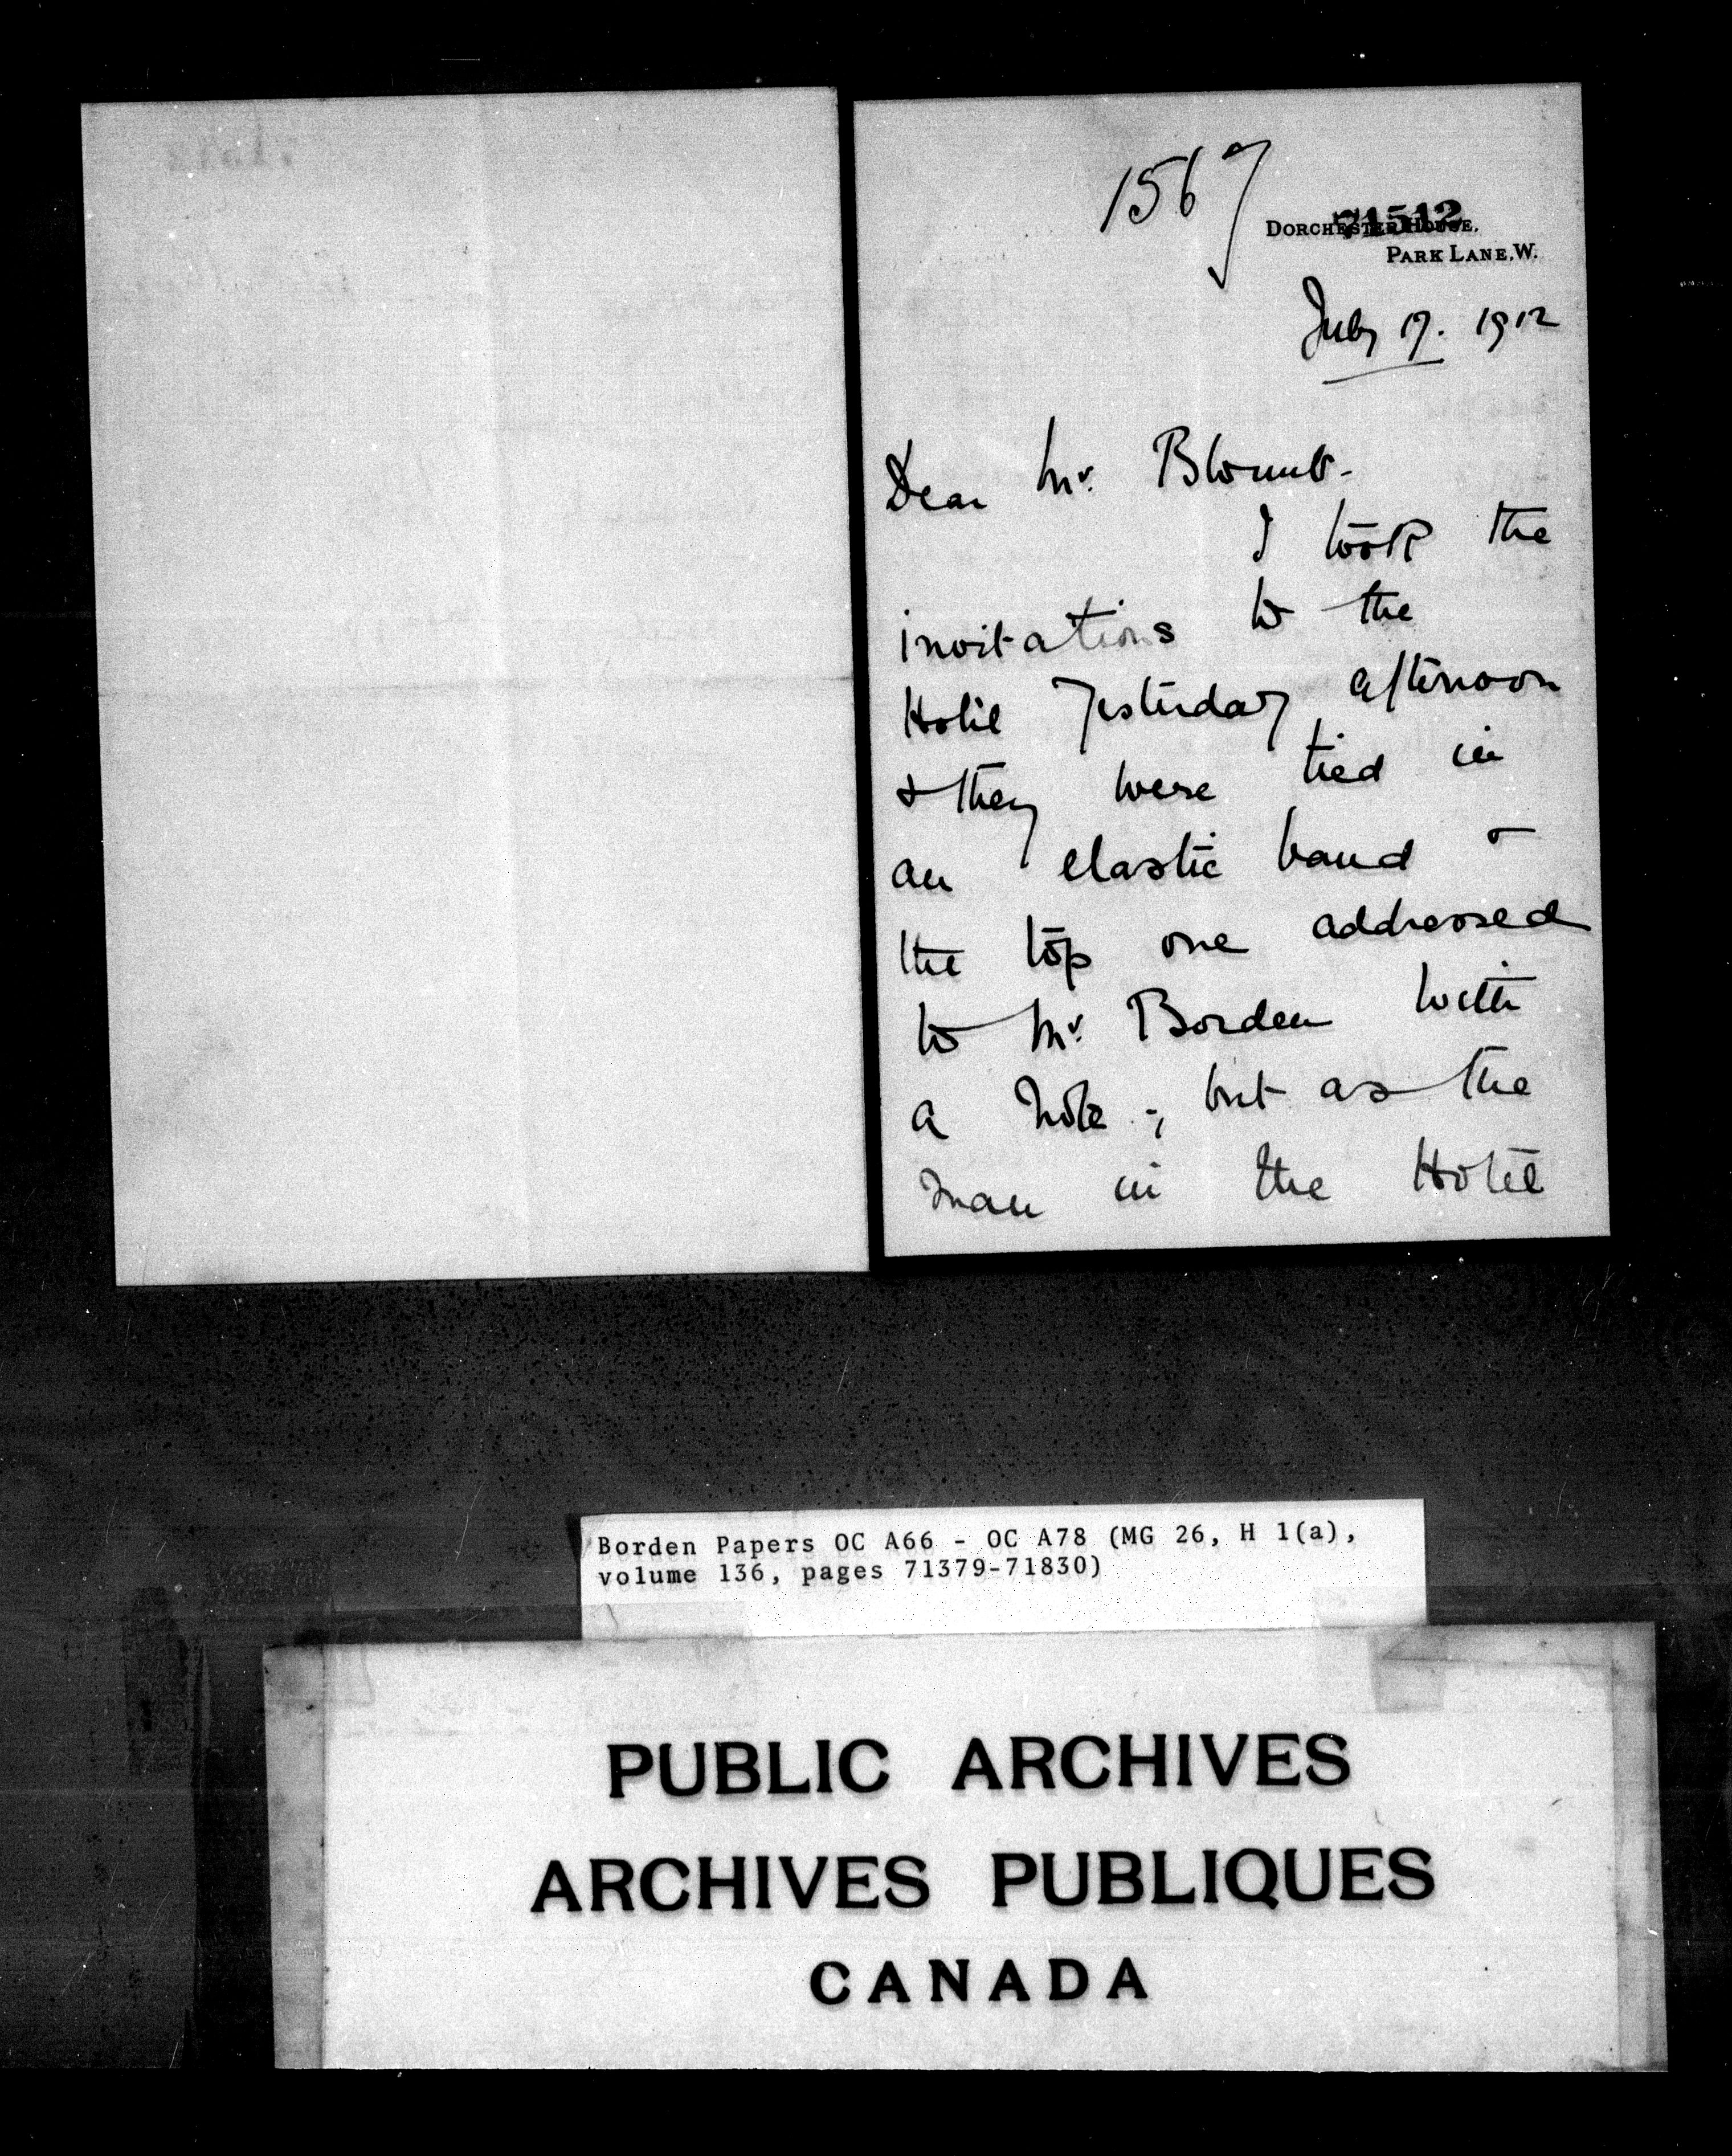 1567
71512
DORCHESTER HOUSE,
PARK LANE, W.
July 17. 1912
Dear Mr. Blount-
I took the
invitations to the
Hotel yesterday afternoon
& they were tied in
an elastic band &
the top one addressed
to Mr. Borden with
a note; but as the
man in the Hotel
Borden Papers OC A66 - OC A78 (MG 26, H 1(a),
volume 136, pages 71379-71830)
PUBLIC ARCHIVES
ARCHIVES PUBLIQUES
CANADA